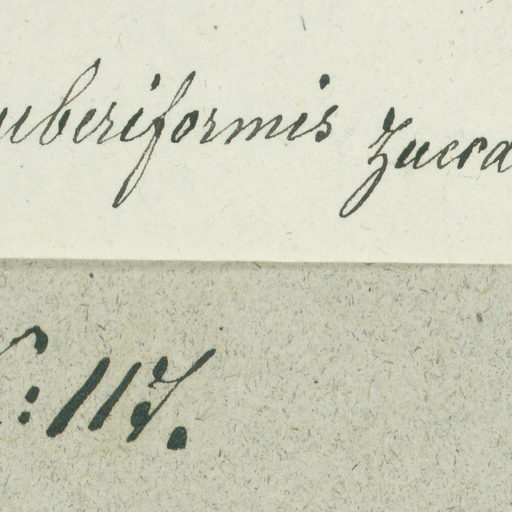 uberiformis Zucca
: 117.